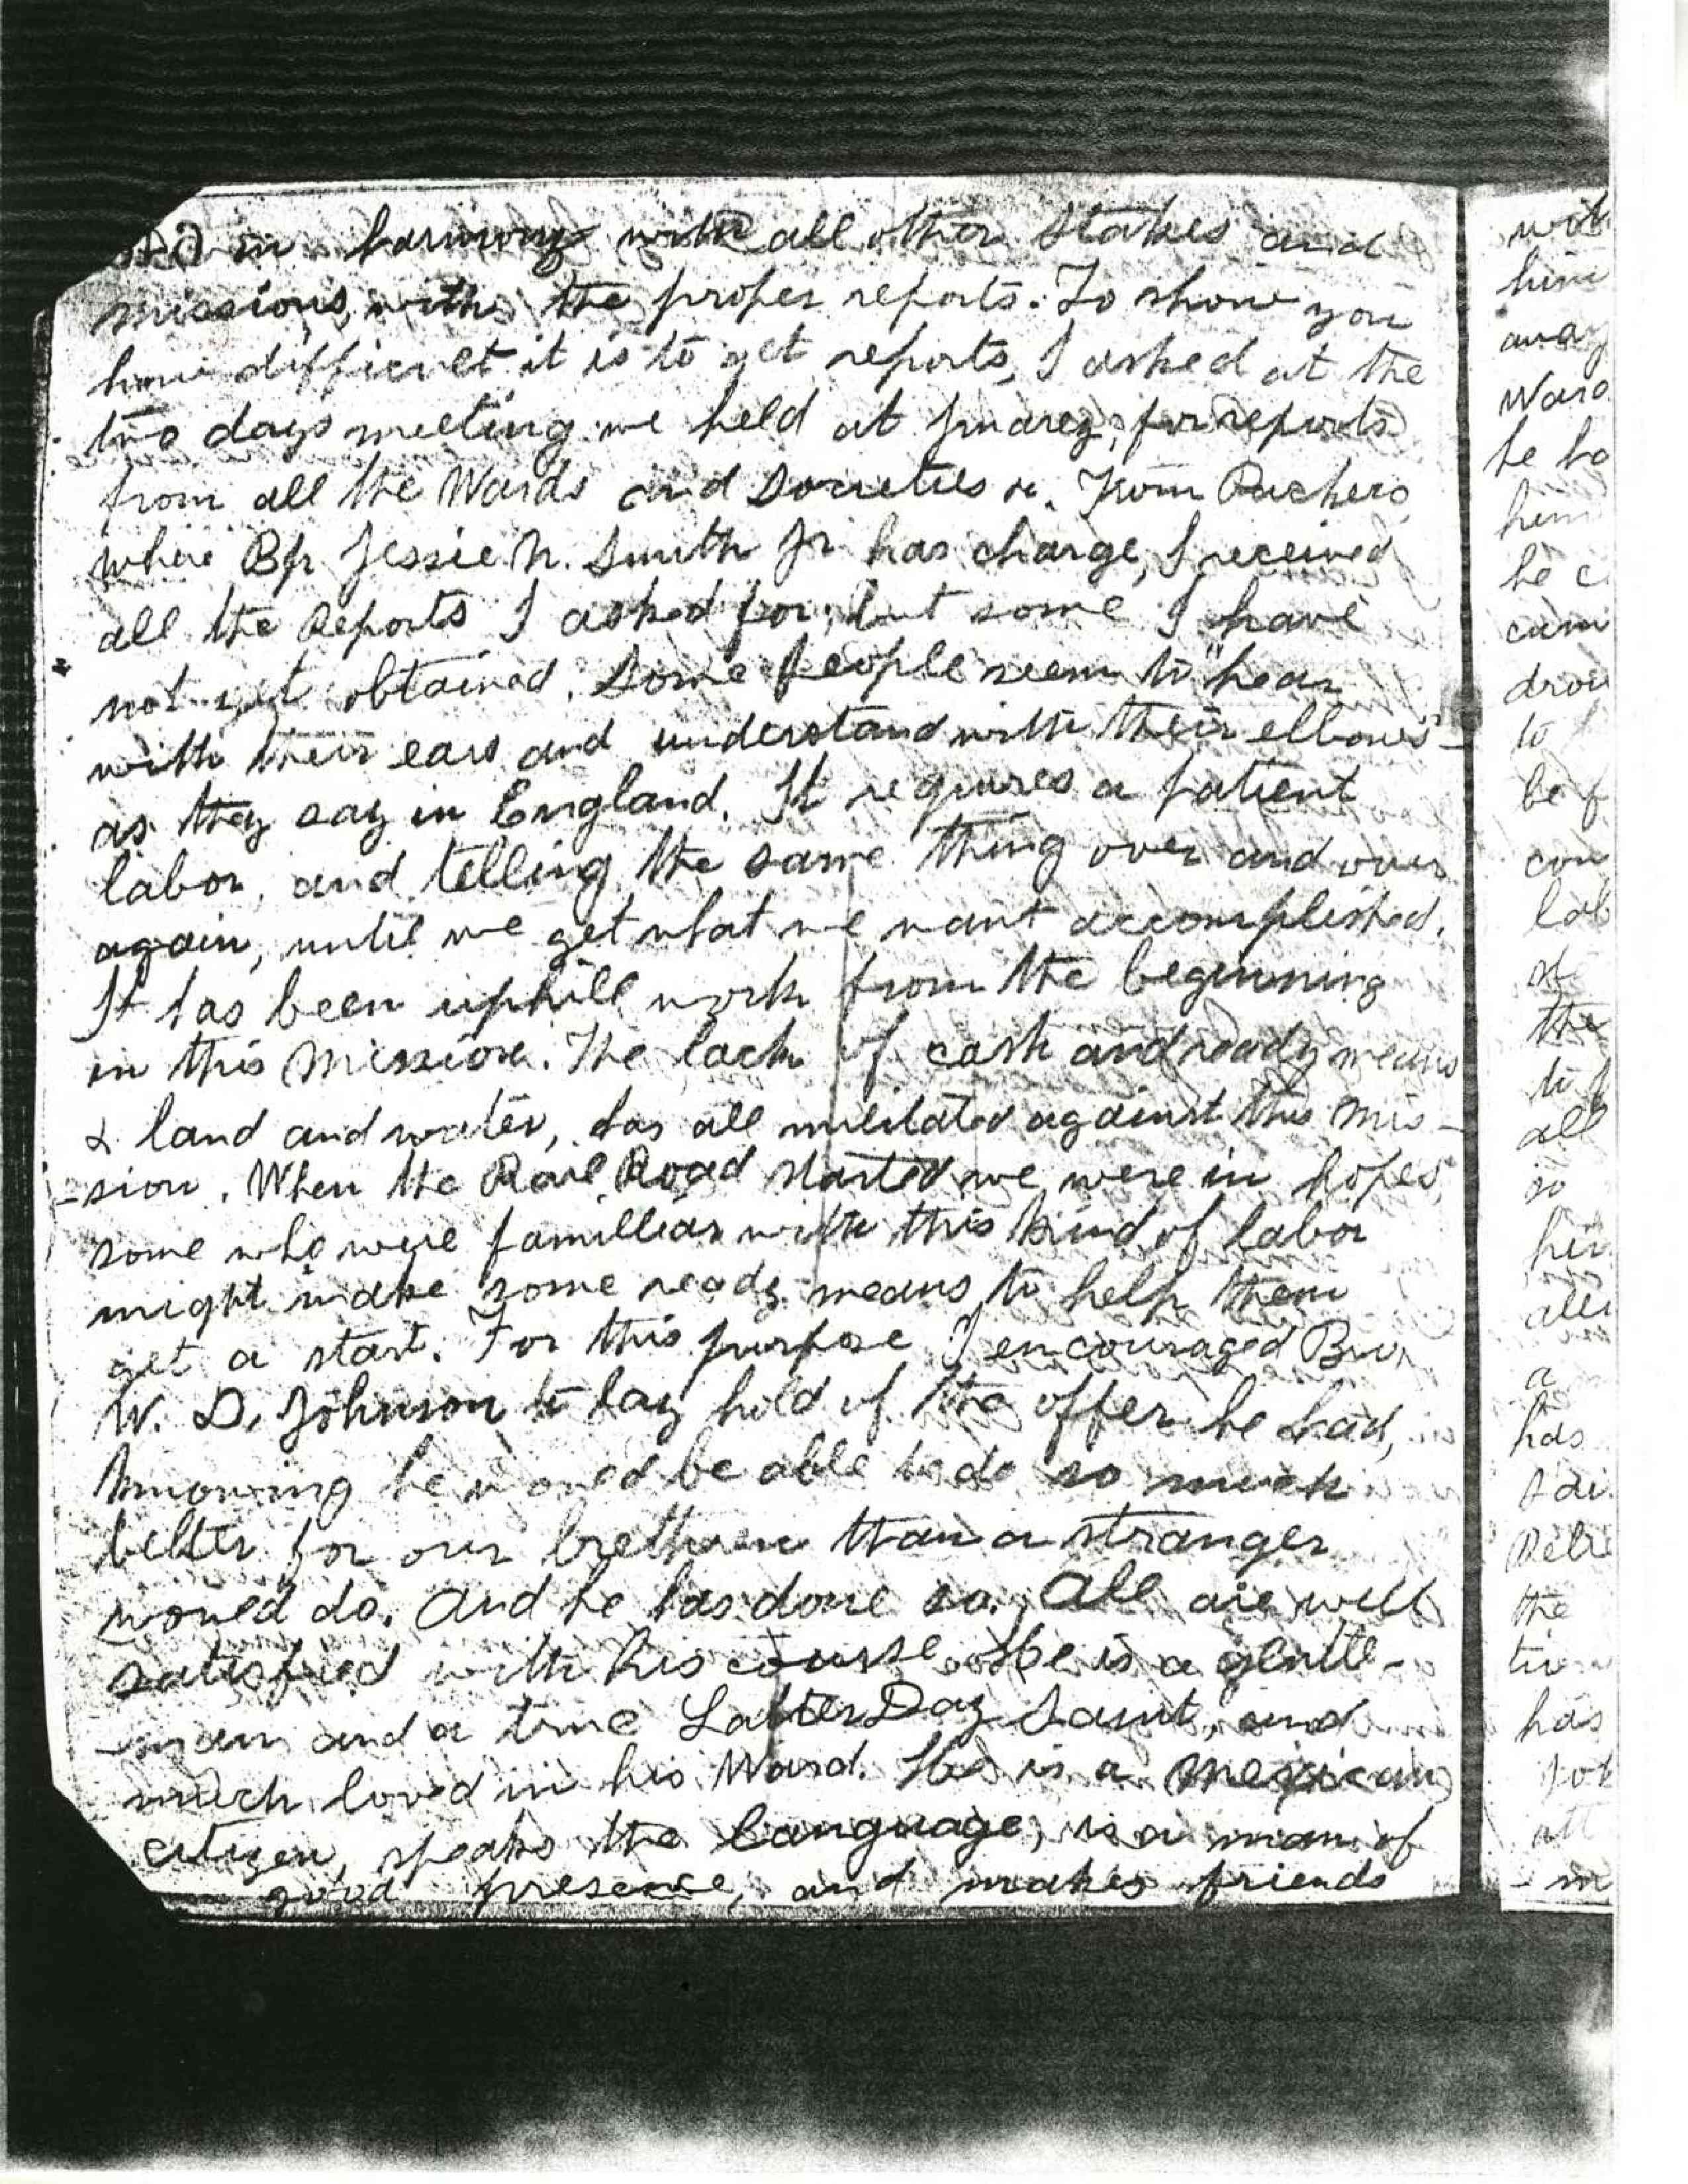 in harmony with all other Stakes and
missions, with the proper reports. To show you
how difficult it is to get reports, I asked at the
two days meeting we held at Juarez, for reports
from all the Wards and Societies &. From Pacheco
where Bp Jessie N. Smith Jr has charge, I received
all the Reports I asked for, but some I have
not yet obtained. Some people seem to "hear
with their ears and understand with their elbows"
as they say in England. It requires a patient
labor, and telling the same thing over and over
again, until we get what we want accomplished.
It has been uphill work from the beginning
in this Mission. The lack of cash and ready means
& land and water, has all militated against this Mis-
-sion. When the Rail Road started we were in hopes
some who were familliar with this kind of labor
might make some ready means to help them
get a start. For this purpose I encouraged Bro.
W. D. Johnson to lay hold of the offer he had,
knowing he woued be able to do so much
better for our brethren than a stranger
woued do. And he has done so. All are well
satisfied with his course. He is a gentle-
-man and a true Latter Day Saint, and
much loved in his Ward. He is a Mexican
citizen, speaks the language, is a man of
good presence, and makes friends
him
Ward
he ha
him
he c
to
be f
lab
the
to
all
so
a
has
the
has